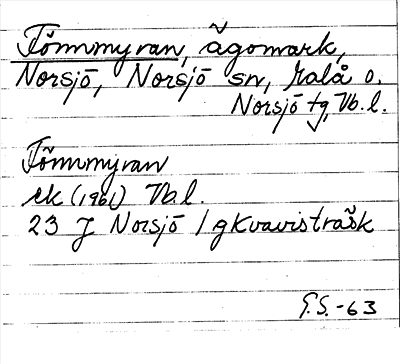 Tömmmyran, ägomark,
Norsjö, Norsjö sn, Malå o.
Norsjö tg, Vb. l.
Tömmmyran
ek (1961) Vb. l.
23 J Norsjö / gKvavisträsk
G.S.-63